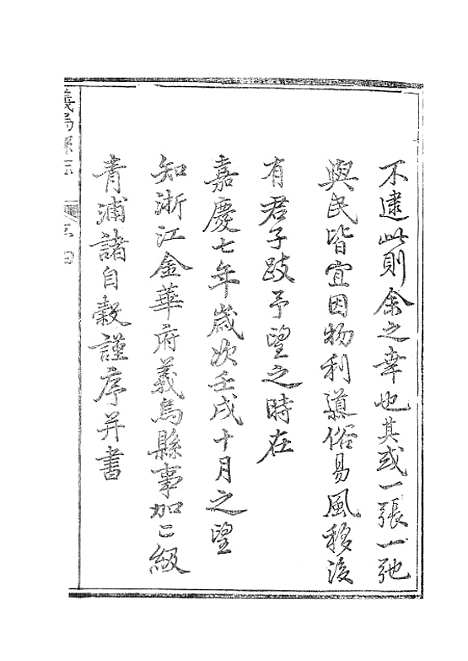 不逮此則余之幸也其或一張一弛
與民皆宜因物利導俗易風移後
有君子跂予望之時在
嘉慶七年歲次壬戌十月之望
知浙江金華府義烏縣事加二級
青浦諸自穀謹序并書
義烏縣志
序 四